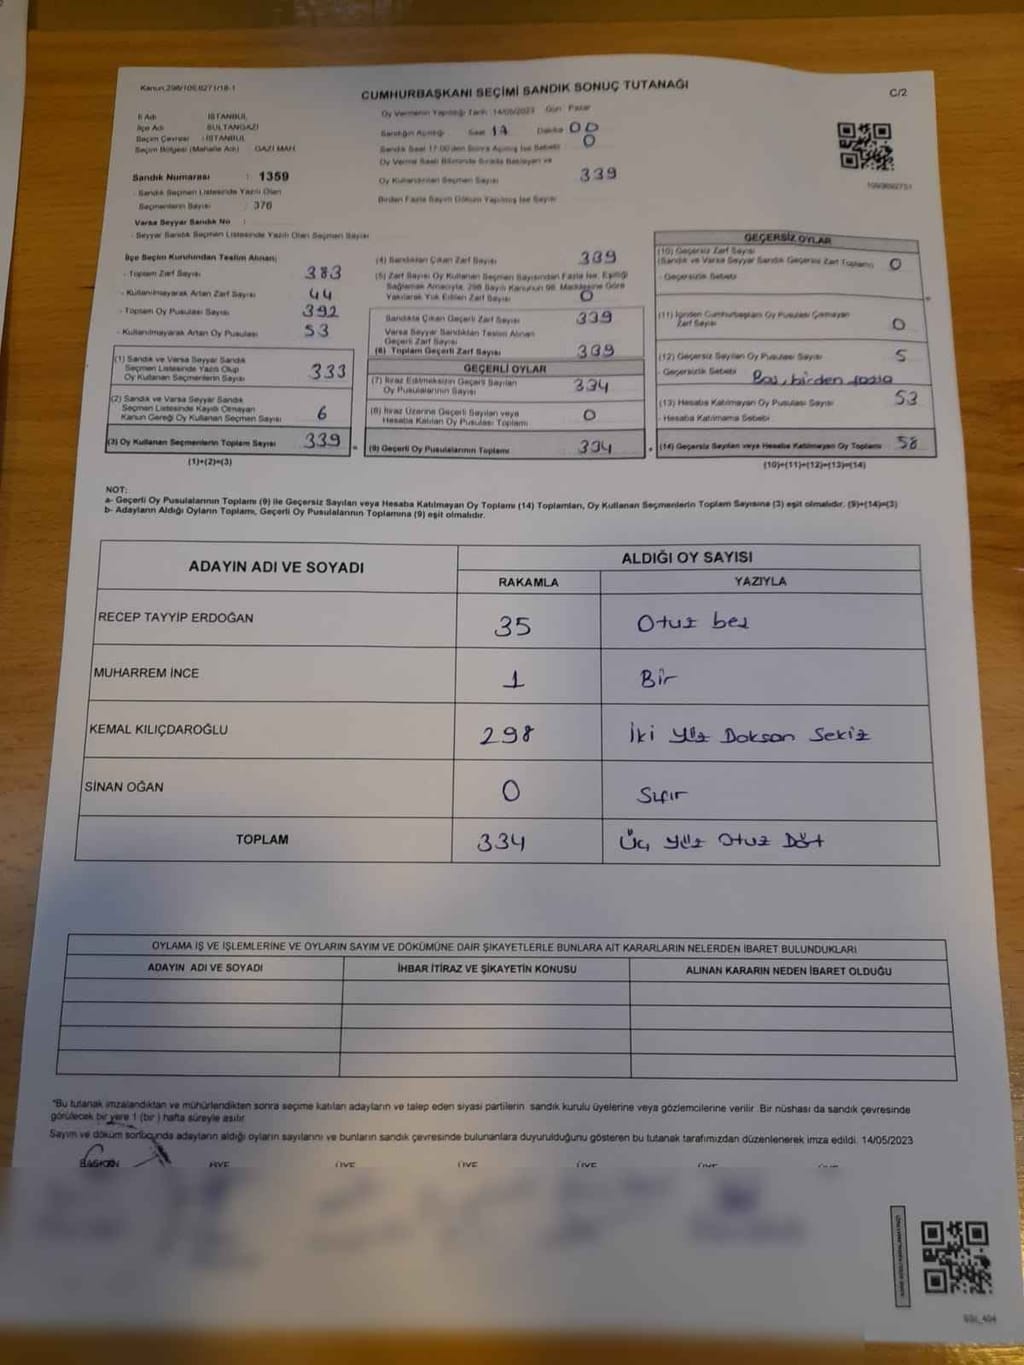 Kanun.298/105,6271/18-1
CUMHURBAŞKANI SEÇİMİ SANDIK SONUÇ TUTANAĞI
C/2
İl Adı : İSTANBUL
İlçe Adı : SULTANGAZİ
Seçim Çevresi : İSTANBUL
Seçim Bölgesi (Mahalle Adı) : GAZİ MAH.
Sandık Numarası : 1359
- Sandık Seçmen Listesinde Yazılı Olan
Seçmenlerin Sayısı : 376
Varsa Seyyar Sandık No :
- Seyyar Sandık Seçmen Listesinde Yazılı Olan Seçmen Sayısı
Oy Vermenin Yapıldığı Tarih : 14/05/2023 Gün : Pazar
Sandığın Açıldığı Saat 17 Dakika 00
Sandık Saat 17:00'den Sonra Açılmış İse Sebebi 0
Oy Verme Saati Bitiminde Sırada Bekleyen ve
Oy Kullandırılan Seçmen Sayısı 339
Birden Fazla Sayım Döküm Yapılmış İse Sayısı
İlçe Seçim Kurulundan Teslim Alınan;
- Toplam Zarf Sayısı 383
- Kullanılmayarak Artan Zarf Sayısı 44
- Toplam Oy Pusulası Sayısı 392
- Kullanılmayarak Artan Oy Pusulası 53
(1) Sandık ve Varsa Seyyar Sandık
Seçmen Listesinde Yazılı Olup
Oy Kullanan Seçmenlerin Sayısı 333
(2) Sandık ve Varsa Seyyar Sandık
Seçmen Listesinde Kayıtlı Olmayan
Kanun Gereği Oy Kullanan Seçmen Sayısı 6
(3) Oy Kullanan Seçmenlerin Toplam Sayısı 339
(1)+(2)=(3)
(4) Sandıktan Çıkan Zarf Sayısı 339
(5) Zarf Sayısı Oy Kullanan Seçmen Sayısından Fazla İse, Eşitliği
Sağlamak Amacıyla, 298 Sayılı Kanunun 98. Maddesine Göre
Yakılarak Yok Edilen Zarf Sayısı 0
Sandıkta Çıkan Geçerli Zarf Sayısı 339
Varsa Seyyar Sandıktan Teslim Alınan
Geçerli Zarf Sayısı
(6) Toplam Geçerli Zarf Sayısı 339
GEÇERLİ OYLAR
(7) İtiraz Edilmeksizin Geçerli Sayılan
Oy Pusulalarının Sayısı 334
(8) İtiraz Üzerine Geçerli Sayılan veya
Hesaba Katılan Oy Pusulası Toplamı 0
(9) Geçerli Oy Pusulalarının Toplamı 334
GEÇERSİZ OYLAR
(10) Geçersiz Zarf Sayısı
(Sandık ve Varsa Seyyar Sandık Geçersiz Zarf Toplamı) 0
- Geçersizlik Sebebi
(11) İçinden Cumhurbaşkanı Oy Pusulası Çıkmayan
Zarf Sayısı 0
(12) Geçersiz Sayılan Oy Pusulası Sayısı 5
- Geçersizlik Sebebi Boş, birden fazla
(13) Hesaba Katılmayan Oy Pusulası Sayısı 53
- Hesaba Katılmama Sebebi
(14) Geçersiz Sayılan veya Hesaba Katılmayan Oy Toplamı 58
(10)+(11)+(12)+(13)=(14)
NOT:
a- Geçerli Oy Pusulalarının Toplamı (9) ile Geçersiz Sayılan veya Hesaba Katılmayan Oy Toplamı (14) Toplamları, Oy Kullanan Seçmenlerin Toplam Sayısına (3) eşit olmalıdır. (9)+(14)=(3)
b- Adayların Aldığı Oyların Toplamı, Geçerli Oy Pusulalarının Toplamına (9) eşit olmalıdır.
ADAYIN ADI VE SOYADI
ALDIĞI OY SAYISI
RAKAMLA YAZIYLA
RECEP TAYYİP ERDOĞAN 35 Otuz beş
MUHARREM İNCE 1 Bir
KEMAL KILIÇDAROĞLU 298 İki Yüz Doksan Sekiz
SİNAN OĞAN 0 Sıfır
TOPLAM 334 Üç Yüz Otuz Dört
OYLAMA İŞ VE İŞLEMLERİNE VE OYLARIN SAYIM VE DÖKÜMÜNE DAİR ŞİKAYETLERLE BUNLARA AİT KARARLARIN NELERDEN İBARET BULUNDUKLARI
ADAYIN ADI VE SOYADI İHBAR İTİRAZ VE ŞİKAYETİN KONUSU ALINAN KARARIN NEDEN İBARET OLDUĞU
"Bu tutanak imzalandıktan ve mühürlendikten sonra seçime katılan adayların ve talep eden siyasi partilerin sandık kurulu üyelerine veya gözlemcilerine verilir. Bir nüshası da sandık çevresinde
görülecek bir yere 1 (bir) hafta süreyle asılır.
Sayım ve döküm sonucunda adayların aldığı oyların sayılarını ve bunların sandık çevresinde bulunanlara duyurulduğunu gösteren bu tutanak tarafımızdan düzenlenerek imza edildi. 14/05/2023
BAŞKAN ÜYE ÜYE ÜYE ÜYE